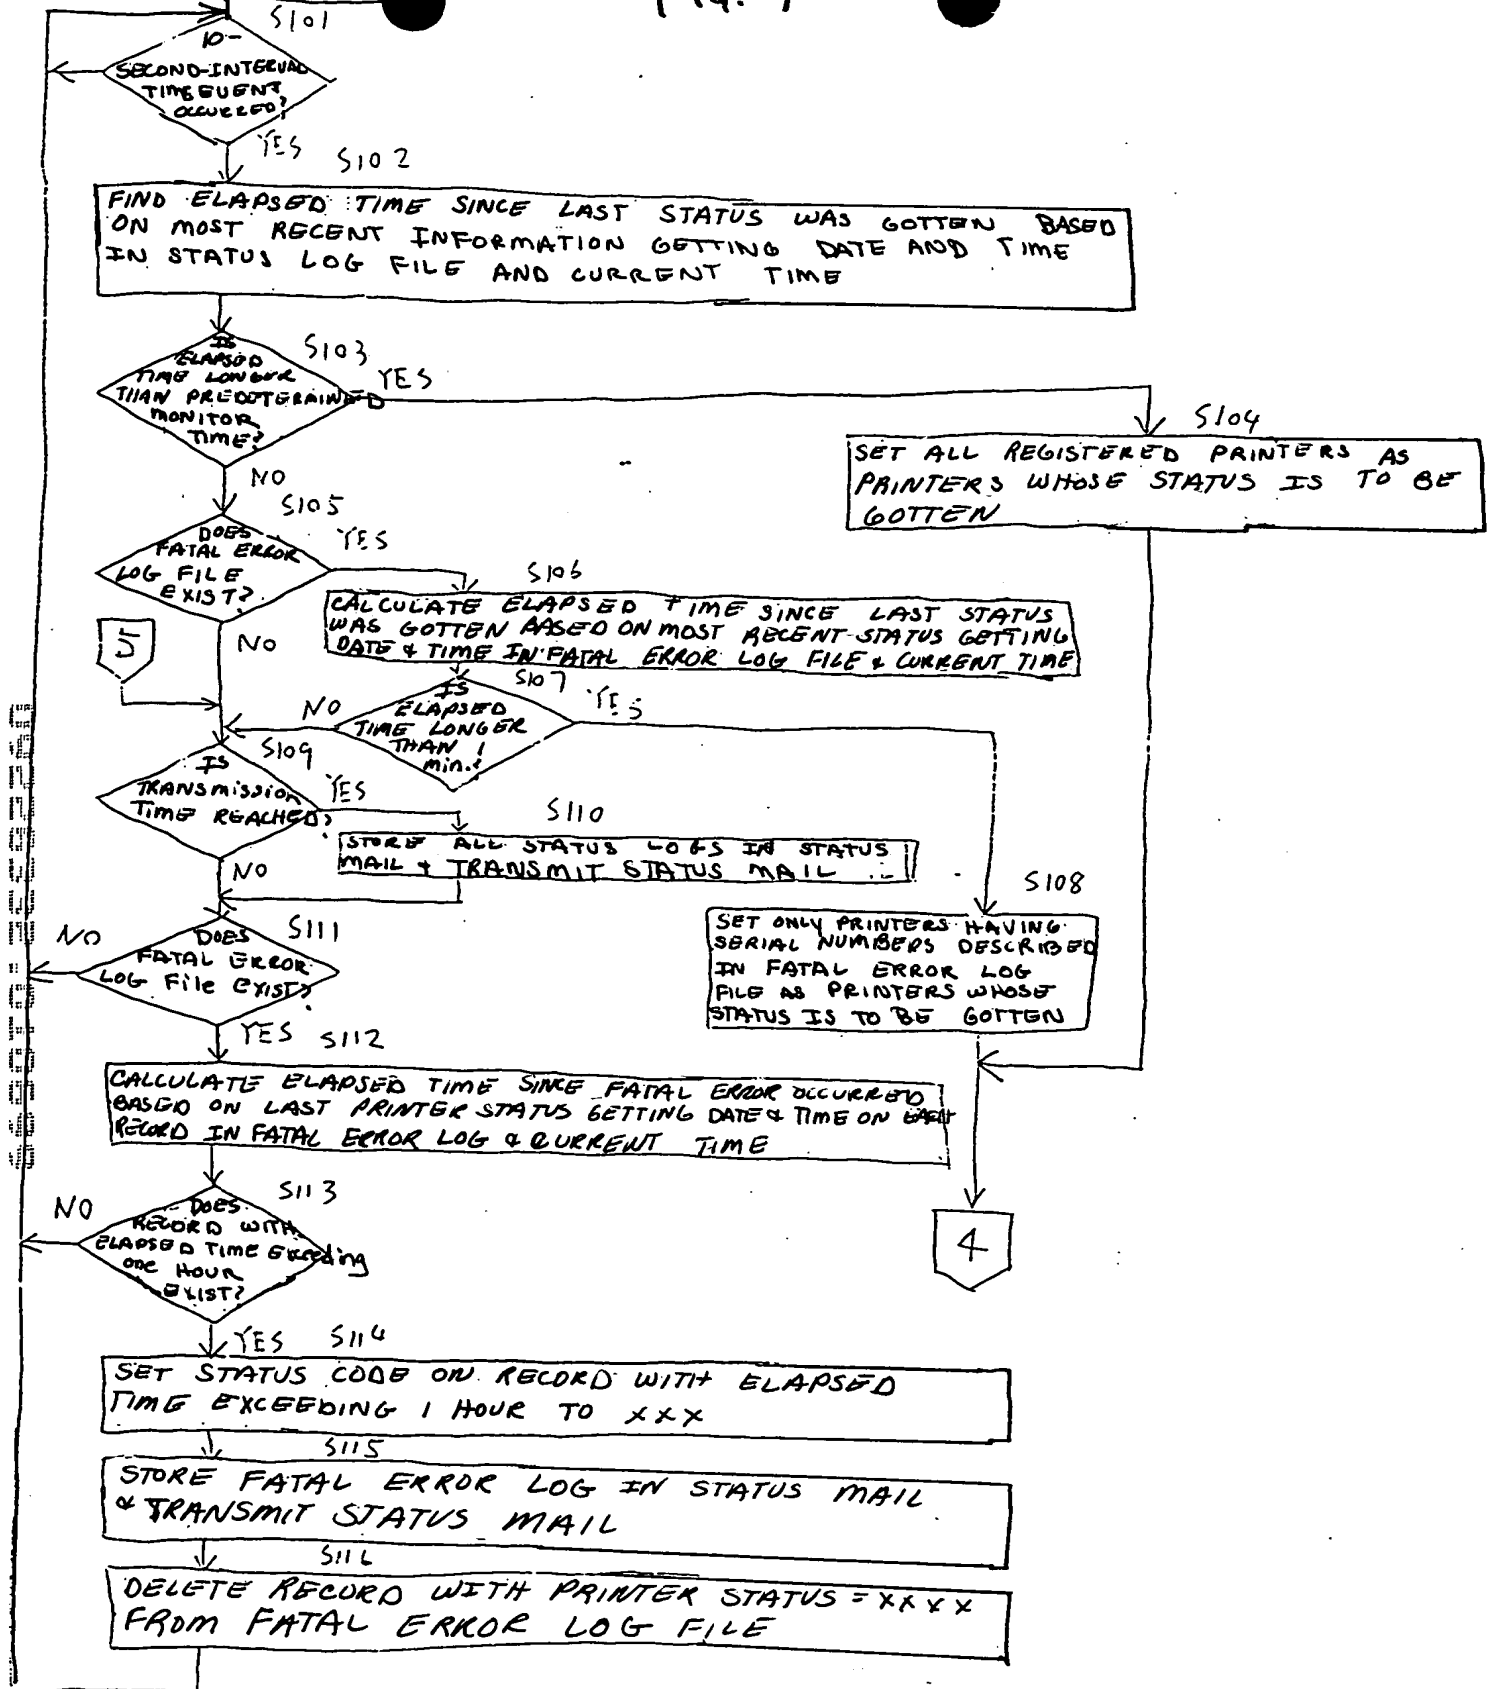 S101
10-
SECOND-INTERVAL
TIME EVENT
OCCURRED?
YES
S102
FIND ELAPSED TIME SINCE LAST STATUS WAS GOTTEN BASED
ON MOST RECENT INFORMATION GETTING DATE AND TIME
IN STATUS LOG FILE AND CURRENT TIME
S103
IS
ELAPSED
TIME LONGER
THAN PREDETERMINED
MONITOR
TIME?
YES
NO
S104
SET ALL REGISTERED PRINTERS AS
PRINTERS WHOSE STATUS IS TO BE
GOTTEN
S105
DOES
FATAL ERROR
LOG FILE
EXIST?
YES
NO
5
S106
CALCULATE ELAPSED TIME SINCE LAST STATUS
WAS GOTTEN BASED ON MOST RECENT STATUS GETTING
DATE & TIME IN FATAL ERROR LOG FILE & CURRENT TIME
S107
IS
ELAPSED
TIME LONGER
THAN 1
min.?
NO
YES
S109
IS
TRANSMISSION
TIME REACHED?
YES
NO
S110
STORE ALL STATUS LOGS IN STATUS
MAIL & TRANSMIT STATUS MAIL
S108
SET ONLY PRINTERS HAVING
SERIAL NUMBERS DESCRIBED
IN FATAL ERROR LOG
FILE AS PRINTERS WHOSE
STATUS IS TO BE GOTTEN
S111
DOES
FATAL ERROR
LOG File EXIST?
NO
YES
S112
CALCULATE ELAPSED TIME SINCE FATAL ERROR OCCURRED
BASED ON LAST PRINTER STATUS GETTING DATE & TIME ON EACH
RECORD IN FATAL ERROR LOG & CURRENT TIME
4
S113
DOES
RECORD WITH
ELAPSED TIME Exceeding
one HOUR
EXIST?
NO
YES
S114
SET STATUS CODE ON RECORD WITH ELAPSED
TIME EXCEEDING 1 HOUR TO XXX
S115
STORE FATAL ERROR LOG IN STATUS MAIL
& TRANSMIT STATUS MAIL
S116
DELETE RECORD WITH PRINTER STATUS = XXXX
FROM FATAL ERROR LOG FILE